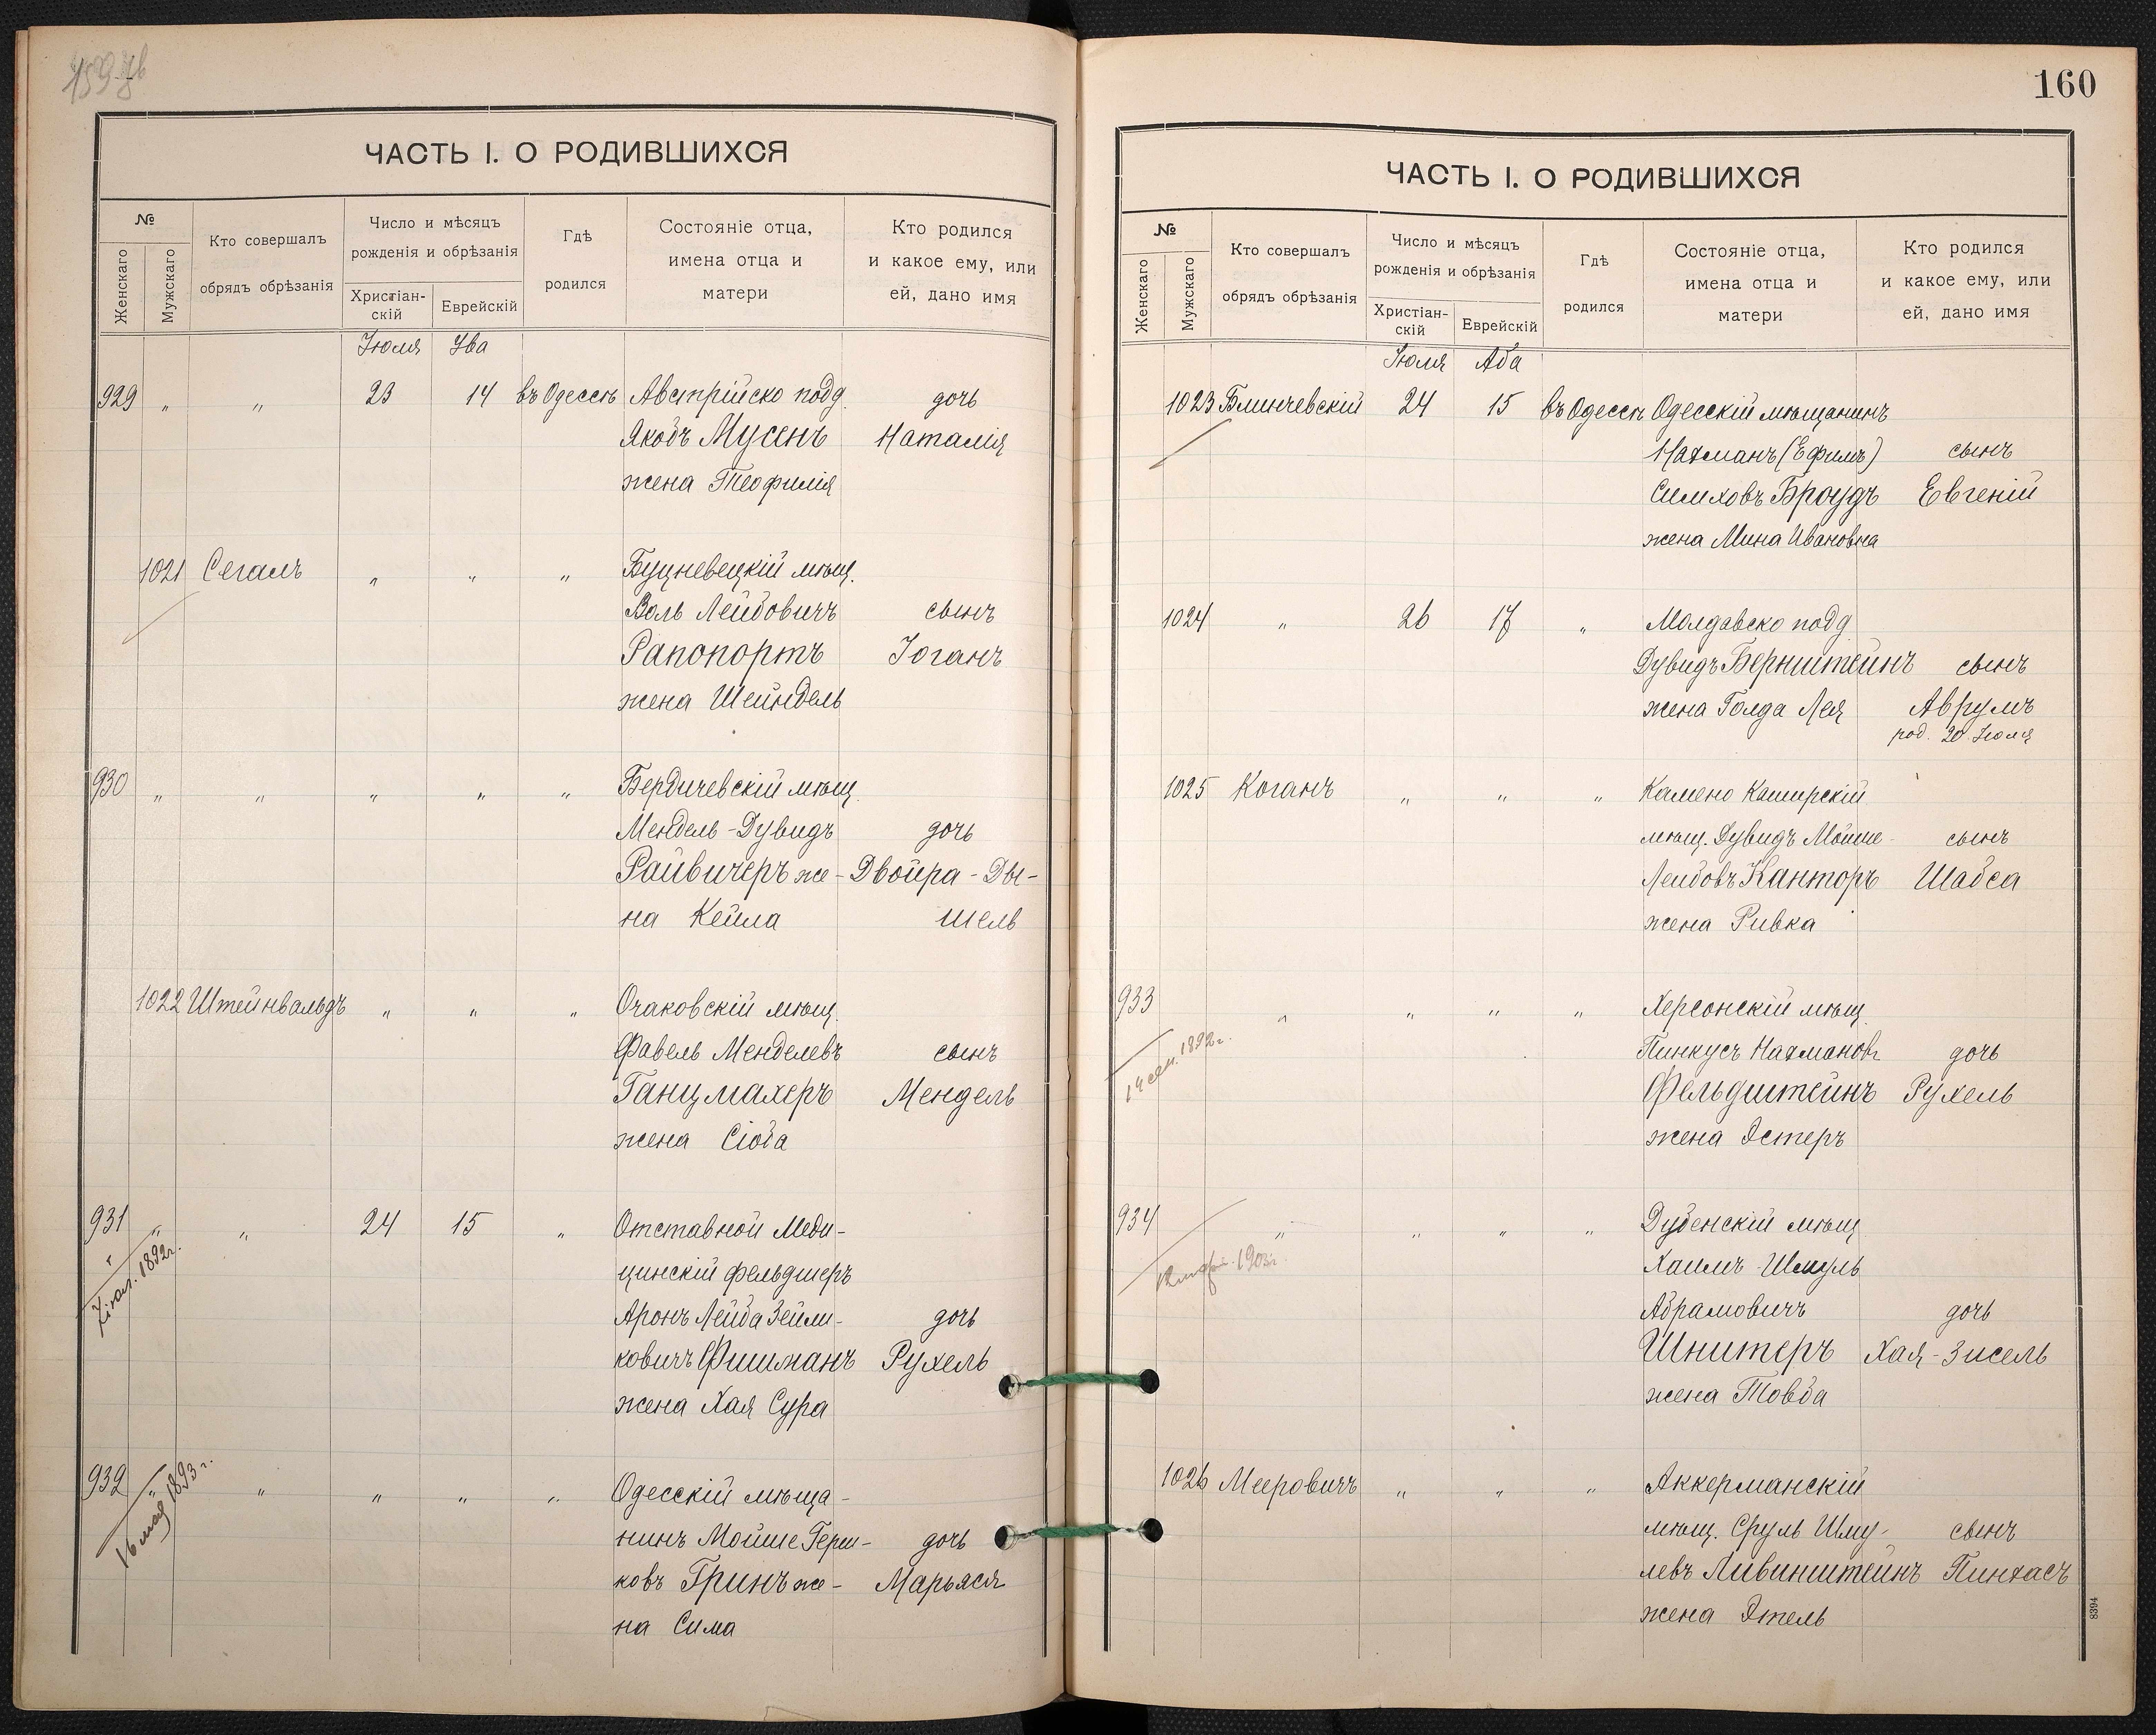 ЧАСТЬ I. О РОДИВШИХСЯ
№
Женскаго
Мужскаго
Кто совершалъ
обрядъ обрѣзанія
Число и мѣсяцъ
рожденія и обрѣзанія
Христіан-
скій
Еврейскій
Гдѣ
родился
Состояніе отца,
имена отца и
матери
Кто родился
и какое ему, или
ей, дано имя
Іюля Ава
929 " " 23 14 въ Одессѣ Австрійско подд. дочь
Якобъ Мусенъ Наталія
жена Теофилія
1021 Сегалъ " " " Буцневецкій мѣщ.
Воль Лейбовичъ сынъ
Рапопортъ Іоганъ
жена Шейндель
930 " " " " " Бердичевскій мѣщ.
Мендель-Дувидъ дочь
Райвичеръ же- Двойра-Ды-
на Кейла шель
1022 Штейнвальдъ " " " Очаковскій мѣщ.
Фавель Менделевъ сынъ
Ганцмахеръ Мендель
жена Сіоба
931 " " 24 15 " Отставной Меди-
1892г.
цинскій фельдшеръ
Аронъ Лейба Зейли- дочь
ковичъ Фишманъ Рухель
жена Хая Сура
932 " " " " " Одесскій мѣща-
16 мая 1893 г.
нинъ Мойше Герш- дочь
ковъ Гринъ же- Марьяся
на Сима
160
ЧАСТЬ I. О РОДИВШИХСЯ
№
Женскаго
Мужскаго
Кто совершалъ
обрядъ обрѣзанія
Число и мѣсяцъ
рожденія и обрѣзанія
Христіан-
скій
Еврейскій
Гдѣ
родился
Состояніе отца,
имена отца и
матери
Кто родился
и какое ему, или
ей, дано имя
Іюля Аба
1023 Блинчевскій 24 15 въ Одессѣ Одесскій мѣщанинъ
Нахманъ (Ефимъ) сынъ
Симховъ Броудъ Евгеній
жена Мина Ивановна
1024 " 26 17 " Молдавско подд
Дувидъ Бернштейнъ сынъ
жена Голда Лея Аврумъ
род. 20 Іюля
1025 Коганъ " " " Камено Каширскій
мѣщ. Дувидъ Мойше- сынъ
Лейбовъ Канторъ Шабса
жена Ривка
933 " " " " Херсонскій мѣщ.
14 сен. 1892г.
Пинкусъ Нахмановъ дочь
Фельдштейнъ Рухель
жена Эстеръ
934 " " " " Дубенскій мѣщ
1903г.
Хаимъ-Шмуль
Абрамовичъ дочь
Шнитеръ Хая-Зисель
жена Товба
1026 Мееровичъ " " " Аккерманскій
мѣщ. Сруль Шму- сынъ
левъ Ливинштейнъ Пинхасъ
жена Этель
8394